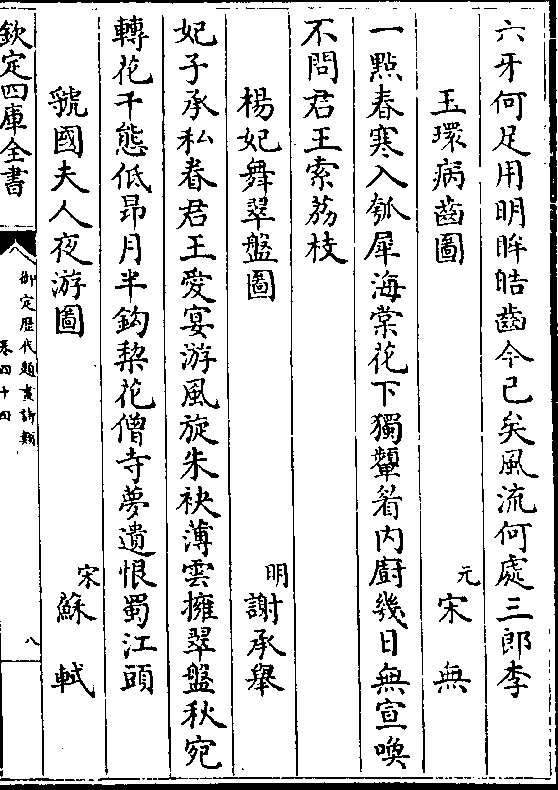 六牙何足用明眸皓齒今已矣風流何處三郎李
玉環病齒圖　元　宋無
一點春寒入瓠犀海棠花下獨顰眉内廚幾日無宣喚
不問君王索荔枝
楊妃舞翠盤圖　明　謝承舉
妃子承私眷君王愛宴游風旋朱袂薄雲擁翠盤秋宛
轉花千態低昂月半鈎棃花僧寺夢遺恨蜀江頭
虢國夫人夜游圖　宋　蘇軾
欽定四庫全書
御定歷代題畫詩類
卷四十四
八